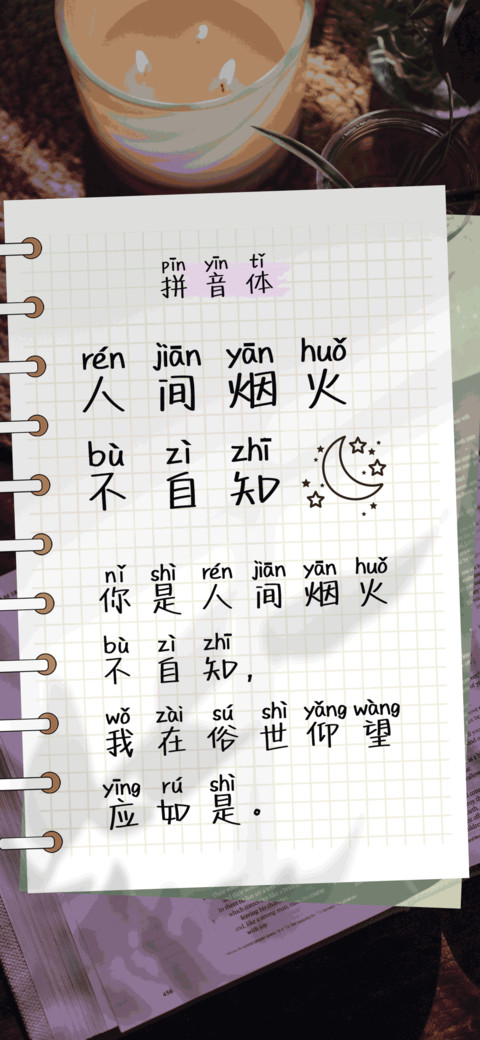 pīn yīn tǐ
拼音体
rén jiān yān huǒ
人间烟火
bù zì zhī
不自知
nǐ shì rén jiān yān huǒ
你是人间烟火
bù zì zhī
不自知，
wǒ zài sú shì yǎng wàng
我在俗世仰望
yīng rú shì
应如是。